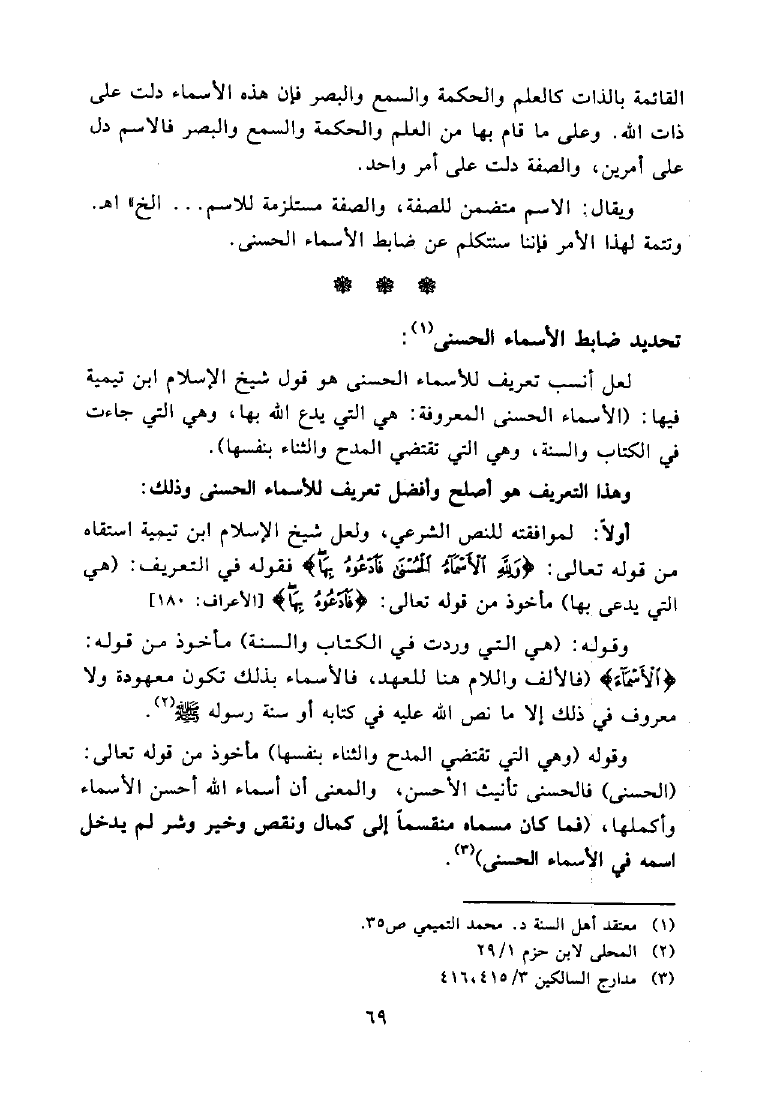 القائمة بالذات كالعلم والحكمة والسمع والبصر فإن هذه الأسماء دلت على
ذات الله. وعلى ما قام بها من العلم والحكمة والسمع والبصر فالاسم دل
على أمرين، والصفة دلت على أمر واحد.
ويقال: الاسم متضمن للصفة، والصفة مستلزمة للاسم... الخ» اهـ.
وتتمة لهذا الأمر فإننا سنتكلم عن ضابط الأسماء الحسنى.
تحديد ضابط الأسماء الحسنى(١):
لعل أنسب تعريف للأسماء الحسنى هو قول شيخ الإسلام ابن تيمية
فيها: (الأسماء الحسنى المعروفة: هي التي يدع الله بها، وهي التي جاءت
في الكتاب والسنة، وهي التي تقتضي المدح والثناء بنفسها).
وهذا التعريف هو أصلح وأفضل تعريف للأسماء الحسنى وذلك:
أولاً: لموافقته للنص الشرعي، ولعل شيخ الإسلام ابن تيمية استقاه
من قوله تعالى: ﴿وَلِلَّهِ ٱلْأَسْمَآءُ ٱلْحُسْنَىٰ فَٱدْعُوهُ بِهَاۖ﴾ فقوله في التعريف: (هي
التي يدعى بها) مأخوذ من قوله تعالى: ﴿فَٱدْعُوهُ بِهَاۖ﴾ [الأعراف: ١٨٠]
وقوله: (هي التي وردت في الكتاب والسنة) مأخوذ من قوله:
﴿ٱلْأَسْمَآءَ﴾ (فالألف واللام هنا للعهد، فالأسماء بذلك تكون معهودة ولا
معروف في ذلك إلا ما نص الله عليه في كتابه أو سنة رسوله ﷺ(٢).
وقوله (وهي التي تقتضي المدح والثناء بنفسها) مأخوذ من قوله تعالى:
(الحسنى) فالحسنى تأنيث الأحسن، والمعنى أن أسماء الله أحسن الأسماء
وأكملها، (فما كان مسماه منقسماً إلى كمال ونقص وخير وشر لم يدخل
اسمه في الأسماء الحسنى)(٣).
(١) معتقد أهل السنة د. محمد التميمي ص٣٥.
(٢) المحلى لابن حزم ٢٩/١
(٣) مدارج السالكين ٤١٦،٤١٥/٣
٦٩